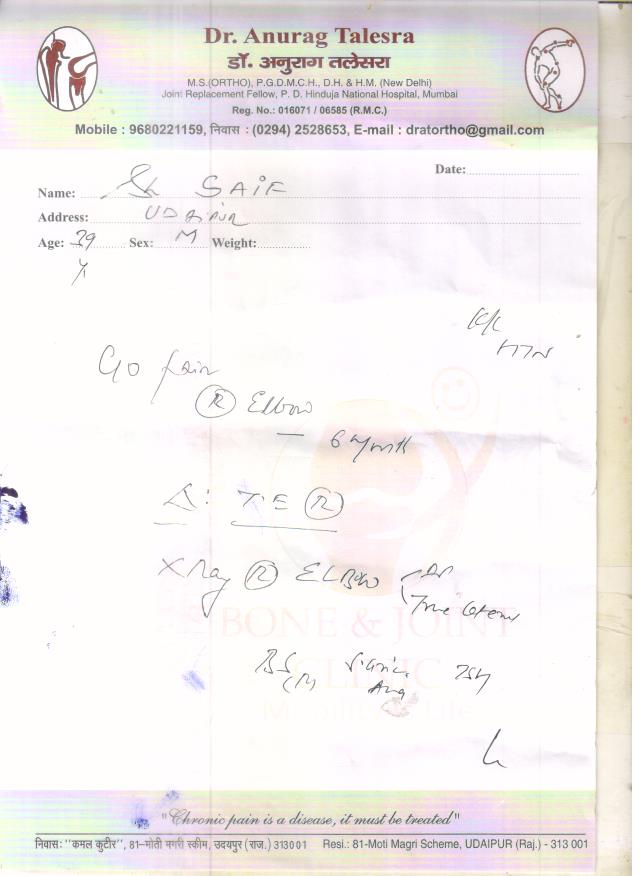 Dr. Anurag Talesra
डॉ. अनुराग तलेसरा
M.S.(ORTHO), P.G.D.M.C.H., D.H. & H.M. (New Delhi)
Joint Replacement Fellow, P. D. Hinduja National Hospital, Mumbai
Reg. No.: 016071 / 06585 (R.M.C.)
Mobile : 9680221159, निवास : (0294) 2528653, E-mail : dratortho@gmail.com
Date:
Name: Sh SAIF
Address: UDAIPUR
Age: 39 Sex: M Weight:
K/C
HTN
C/o pain
(R) Elbow
— 6 month
Δ: T.E (R)
X Ray (R) ELBOW AP
True Lateral
BONE & JOINT
CLINIC
BS (R) Uric TSH
"Chronic pain is a disease, it must be treated"
निवास: "कमल कुटीर", 81-मोती मगरी स्कीम, उदयपुर (राज.) 313001 Resi.: 81-Moti Magri Scheme, UDAIPUR (Raj.) - 313 001